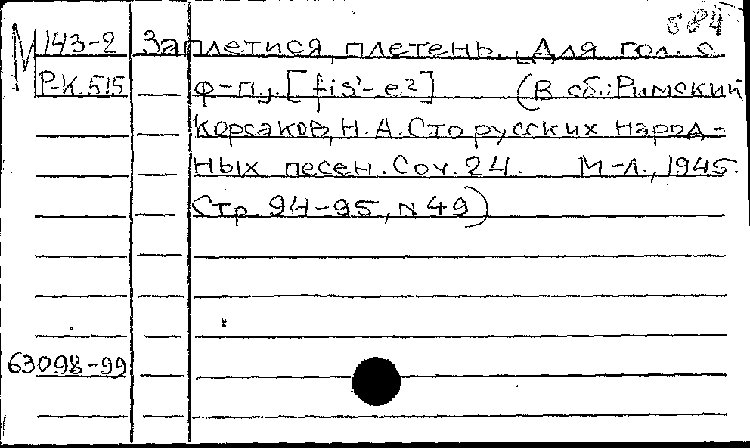 584
М 143-2 Заплетися, плетень. Для гол. с
Р-К.515 ф-п., [fis¹-e²] (В сб.: Римский
Корсаков, Н.А. Сто русских народ-
ных песен. Соч. 24. М-Л., 1945.
Стр. 94-95, N 49)
63098-99